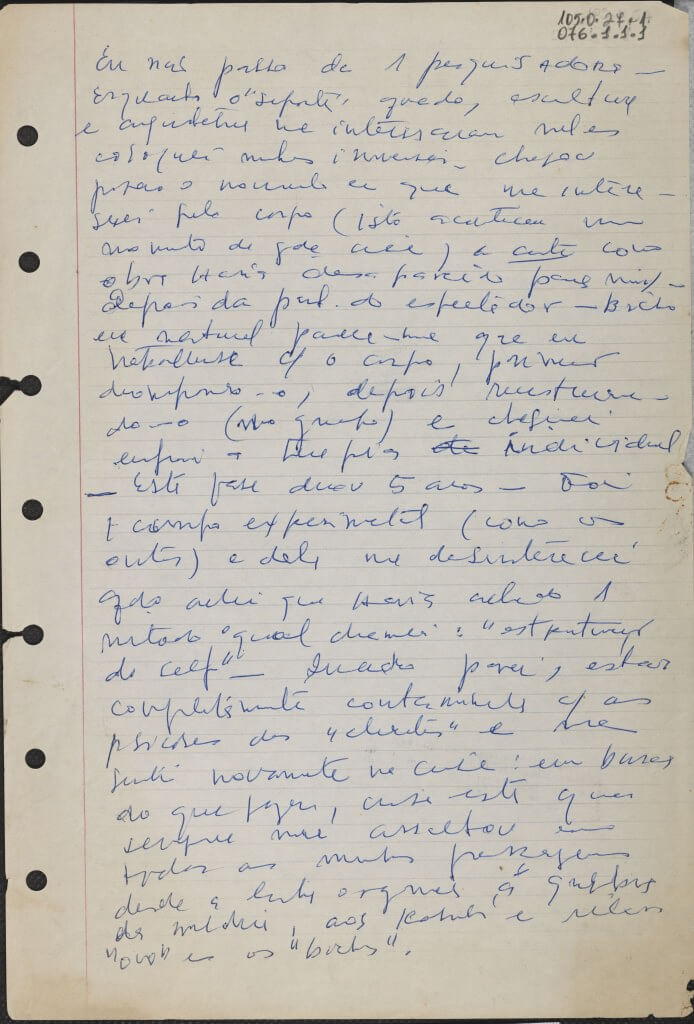 109.0.27.1.
076.1.1.1
Eu não passo de 1 pesquisadora –
Enquanto o "suporte", quadro, escultura
e arquitetura me interessavam neles
coloquei minhas . Chegou
porém o momento em que me intere-
ssei pelo corpo (isto aconteceu num
momento de gde crise) a arte como
obra havia desaparecido para mim –
Depois da part. do espectador – Bicho
era natural parece-me que eu
trabalhasse c/ o corpo, primeiro
decompondo-o, depois reestruturan-
do-o (no grupo) e cheguei
enfim a terapia individual
– Esta fase durou 5 anos – Foi
1 campo experimental (como os
outros) e dele me desinteressei
qdo achei que havia achado 1
método o qual chamei: "estruturação
do self" – Quando parei, estava
completamente contaminada c/ as
psicoses dos "clientes" e me
senti novamente na crise: em busca
do que fazer, crise esta que
sempre me assaltou em
todas as minhas passagens
desde a linha orgânica, à quebra
da moldura, aos casulos e
"ovo" e os "bichos".